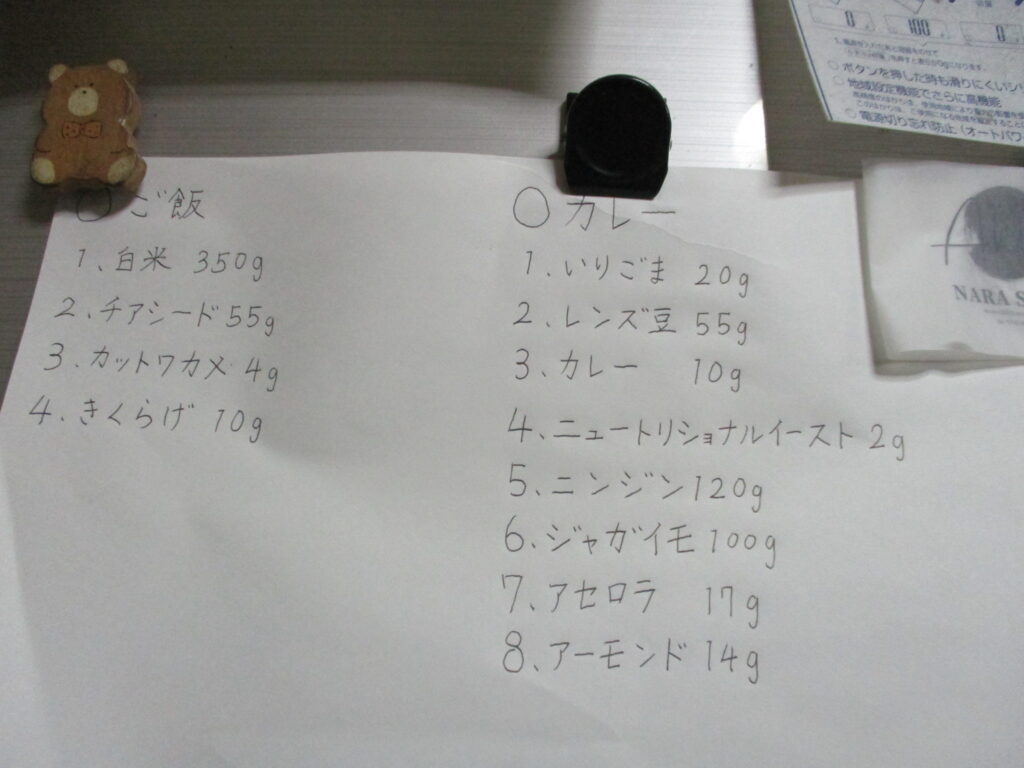 ○ご飯
1、白米 350g
2、チアシード 55g
3、カットワカメ 4g
4、きくらげ 10g
○カレー
1、いりごま 20g
2、レンズ豆 55g
3、カレー 10g
4、ニュートリショナルイースト 2g
5、ニンジン 120g
6、ジャガイモ 100g
7、アセロラ 17g
8、アーモンド 14g
0 100 0
○ボタンを押した時も滑りにくいシリ
○地域設定機能でさらに高機能
○電源切り忘れ防止（オートパワ
NARA S